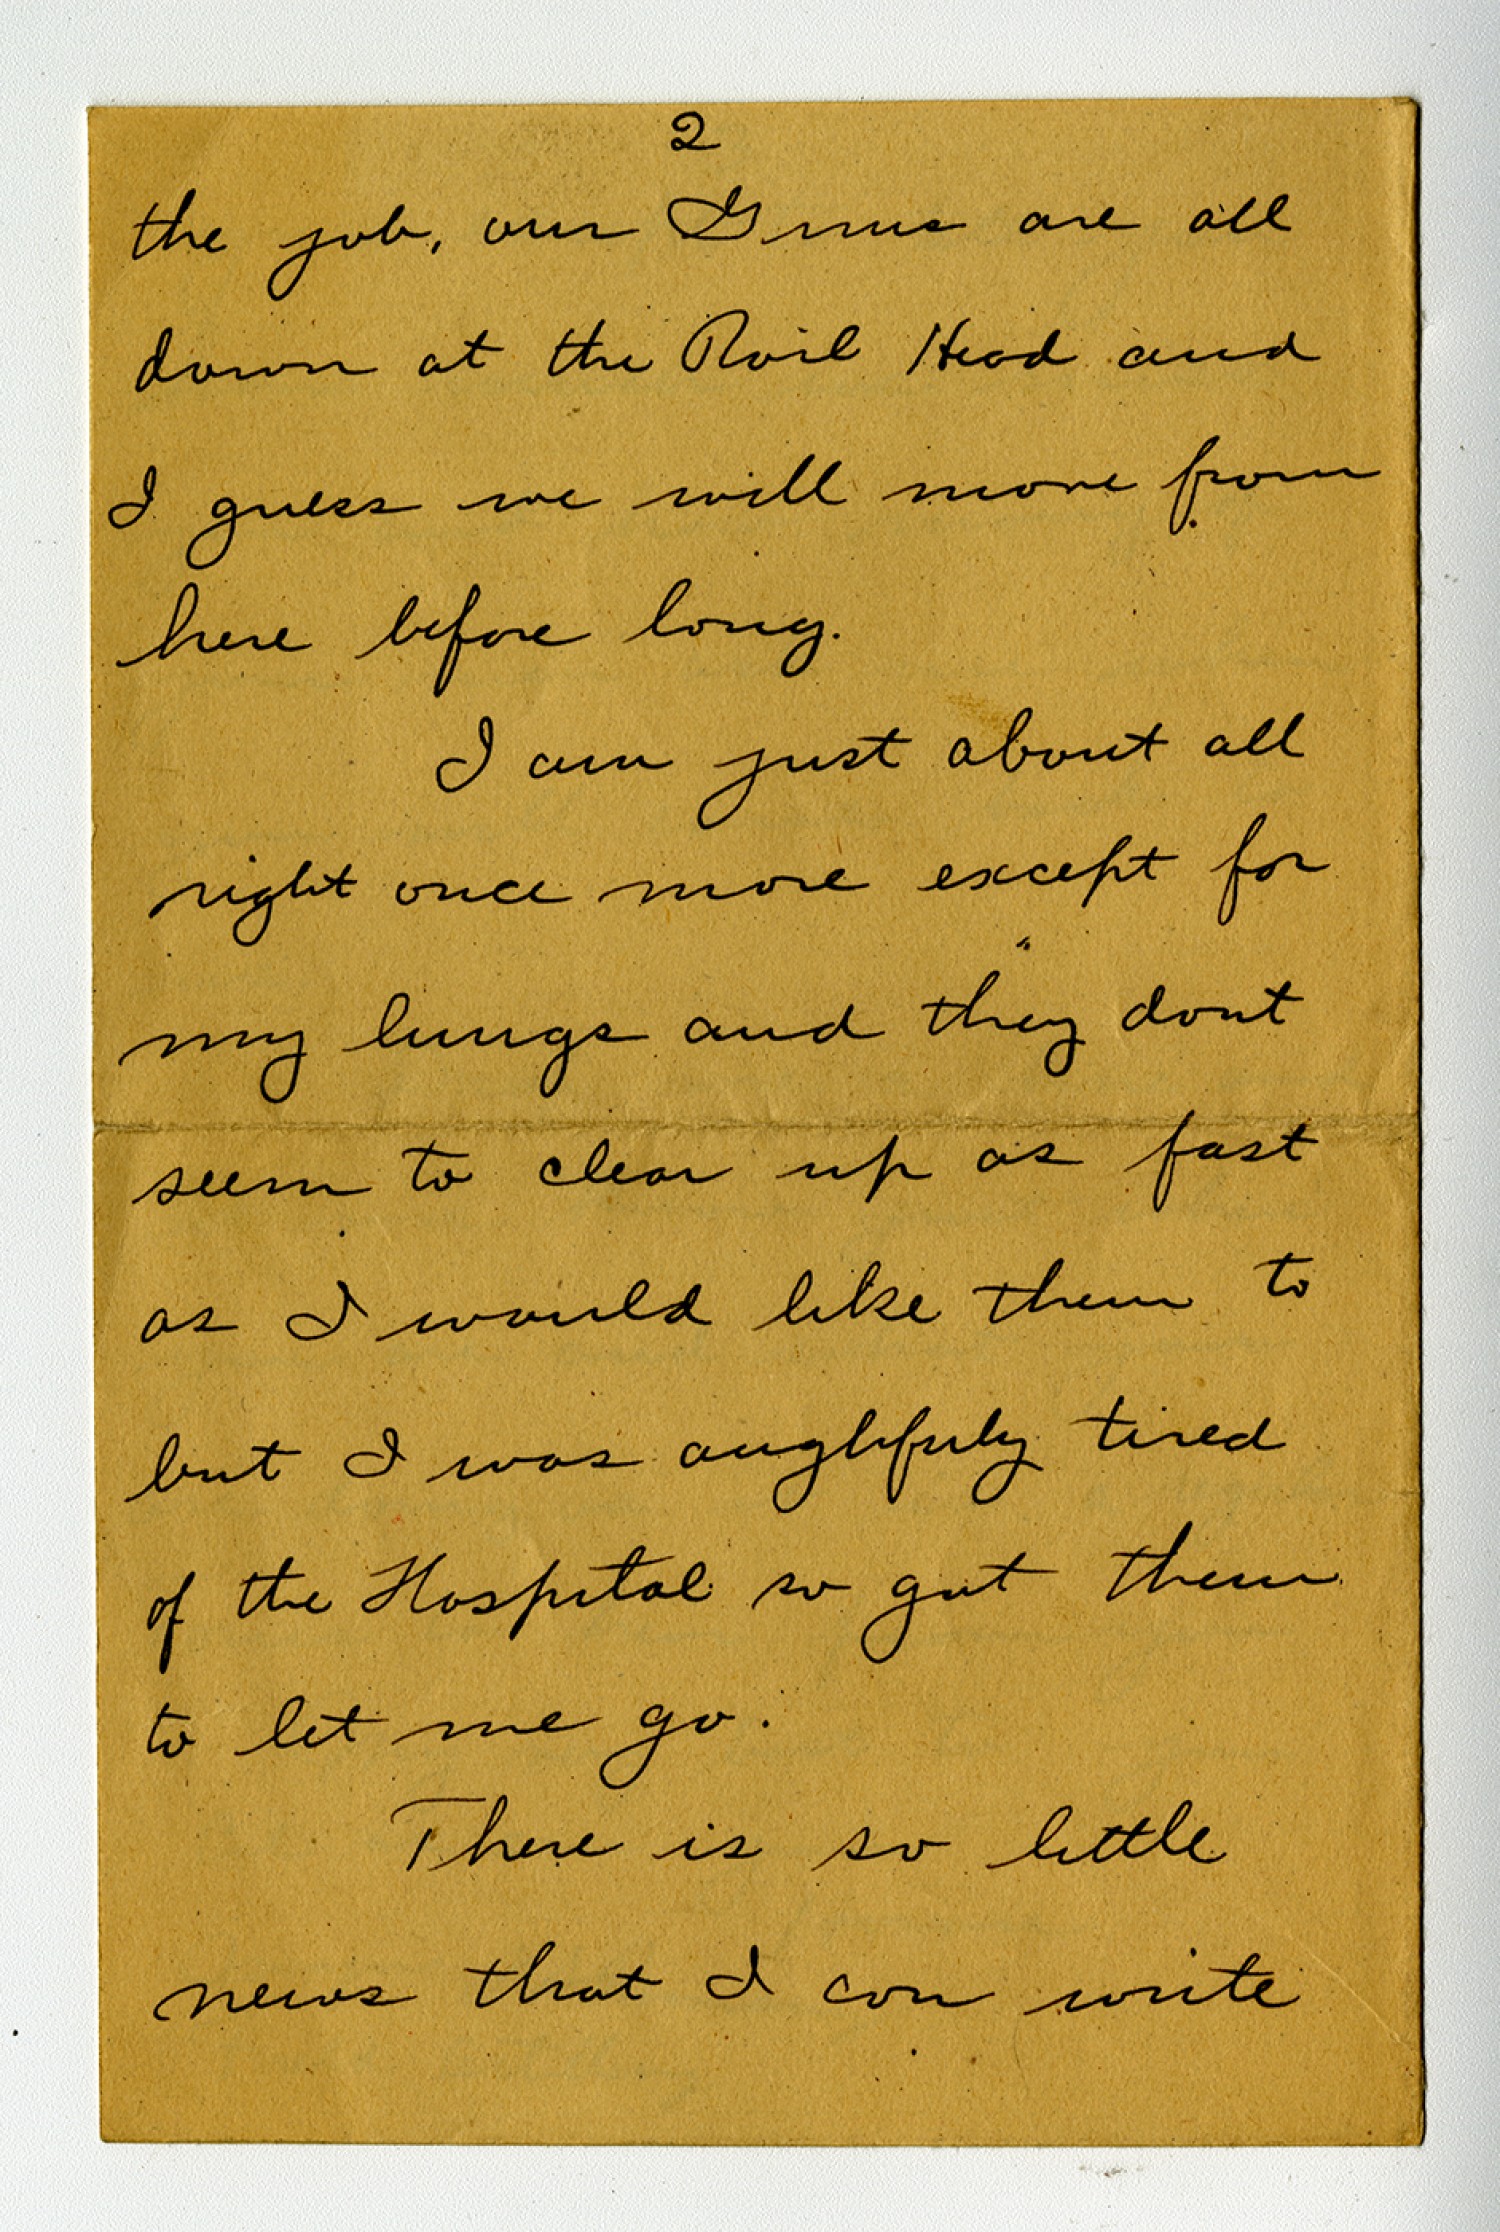 2
the job, our Guns are all
down at the Rail Head and
I guess we will move from
here before long.
I am just about all
right once more except for
my lungs and they dont
seem to clear up as fast
as I would like them to
but I was aughfuly tired
of the Hospital so got them
to let me go.
There is so little
news that I can write